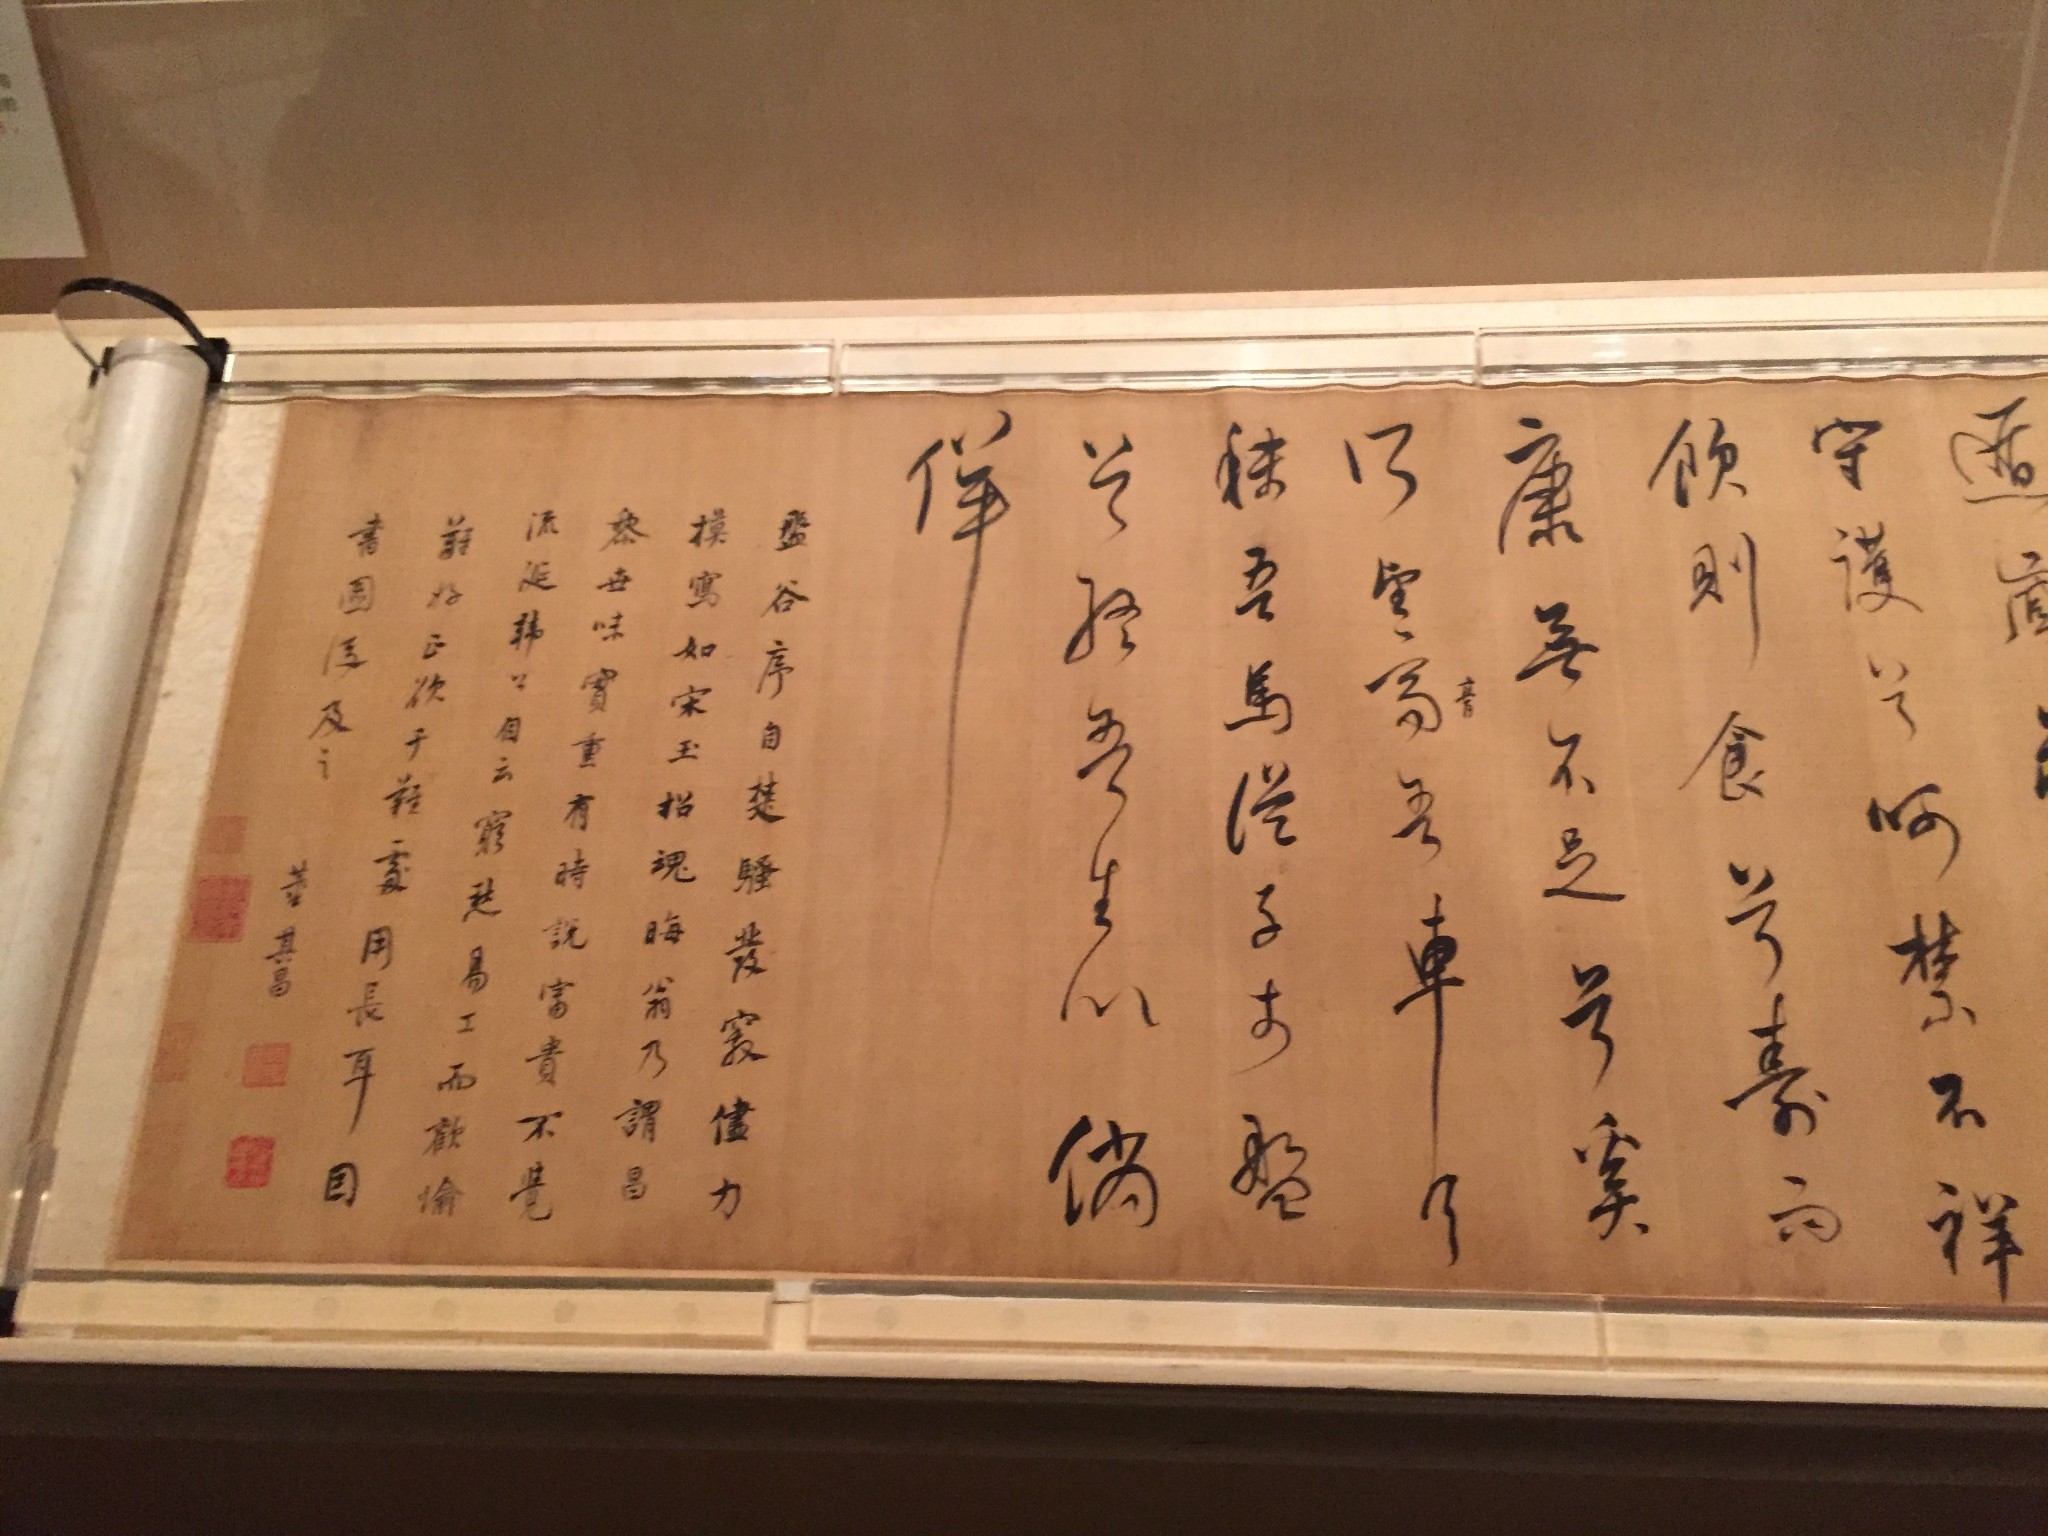 遁藏
守護兮呵禁不祥
飲則食兮壽而
康無不足兮奚
所望膏吾車兮
音
秣吾馬從子于盤
兮終吾生以徜
徉
盤谷序自楚騷發竅儘力
摸寫如宋玉招魂晦翁乃謂昌
黎世味實重有時說富貴不覺
流涎韓公自云窮愁易工而歡愉
難好正欲于難處用長耳因
書圖後及之
董其昌